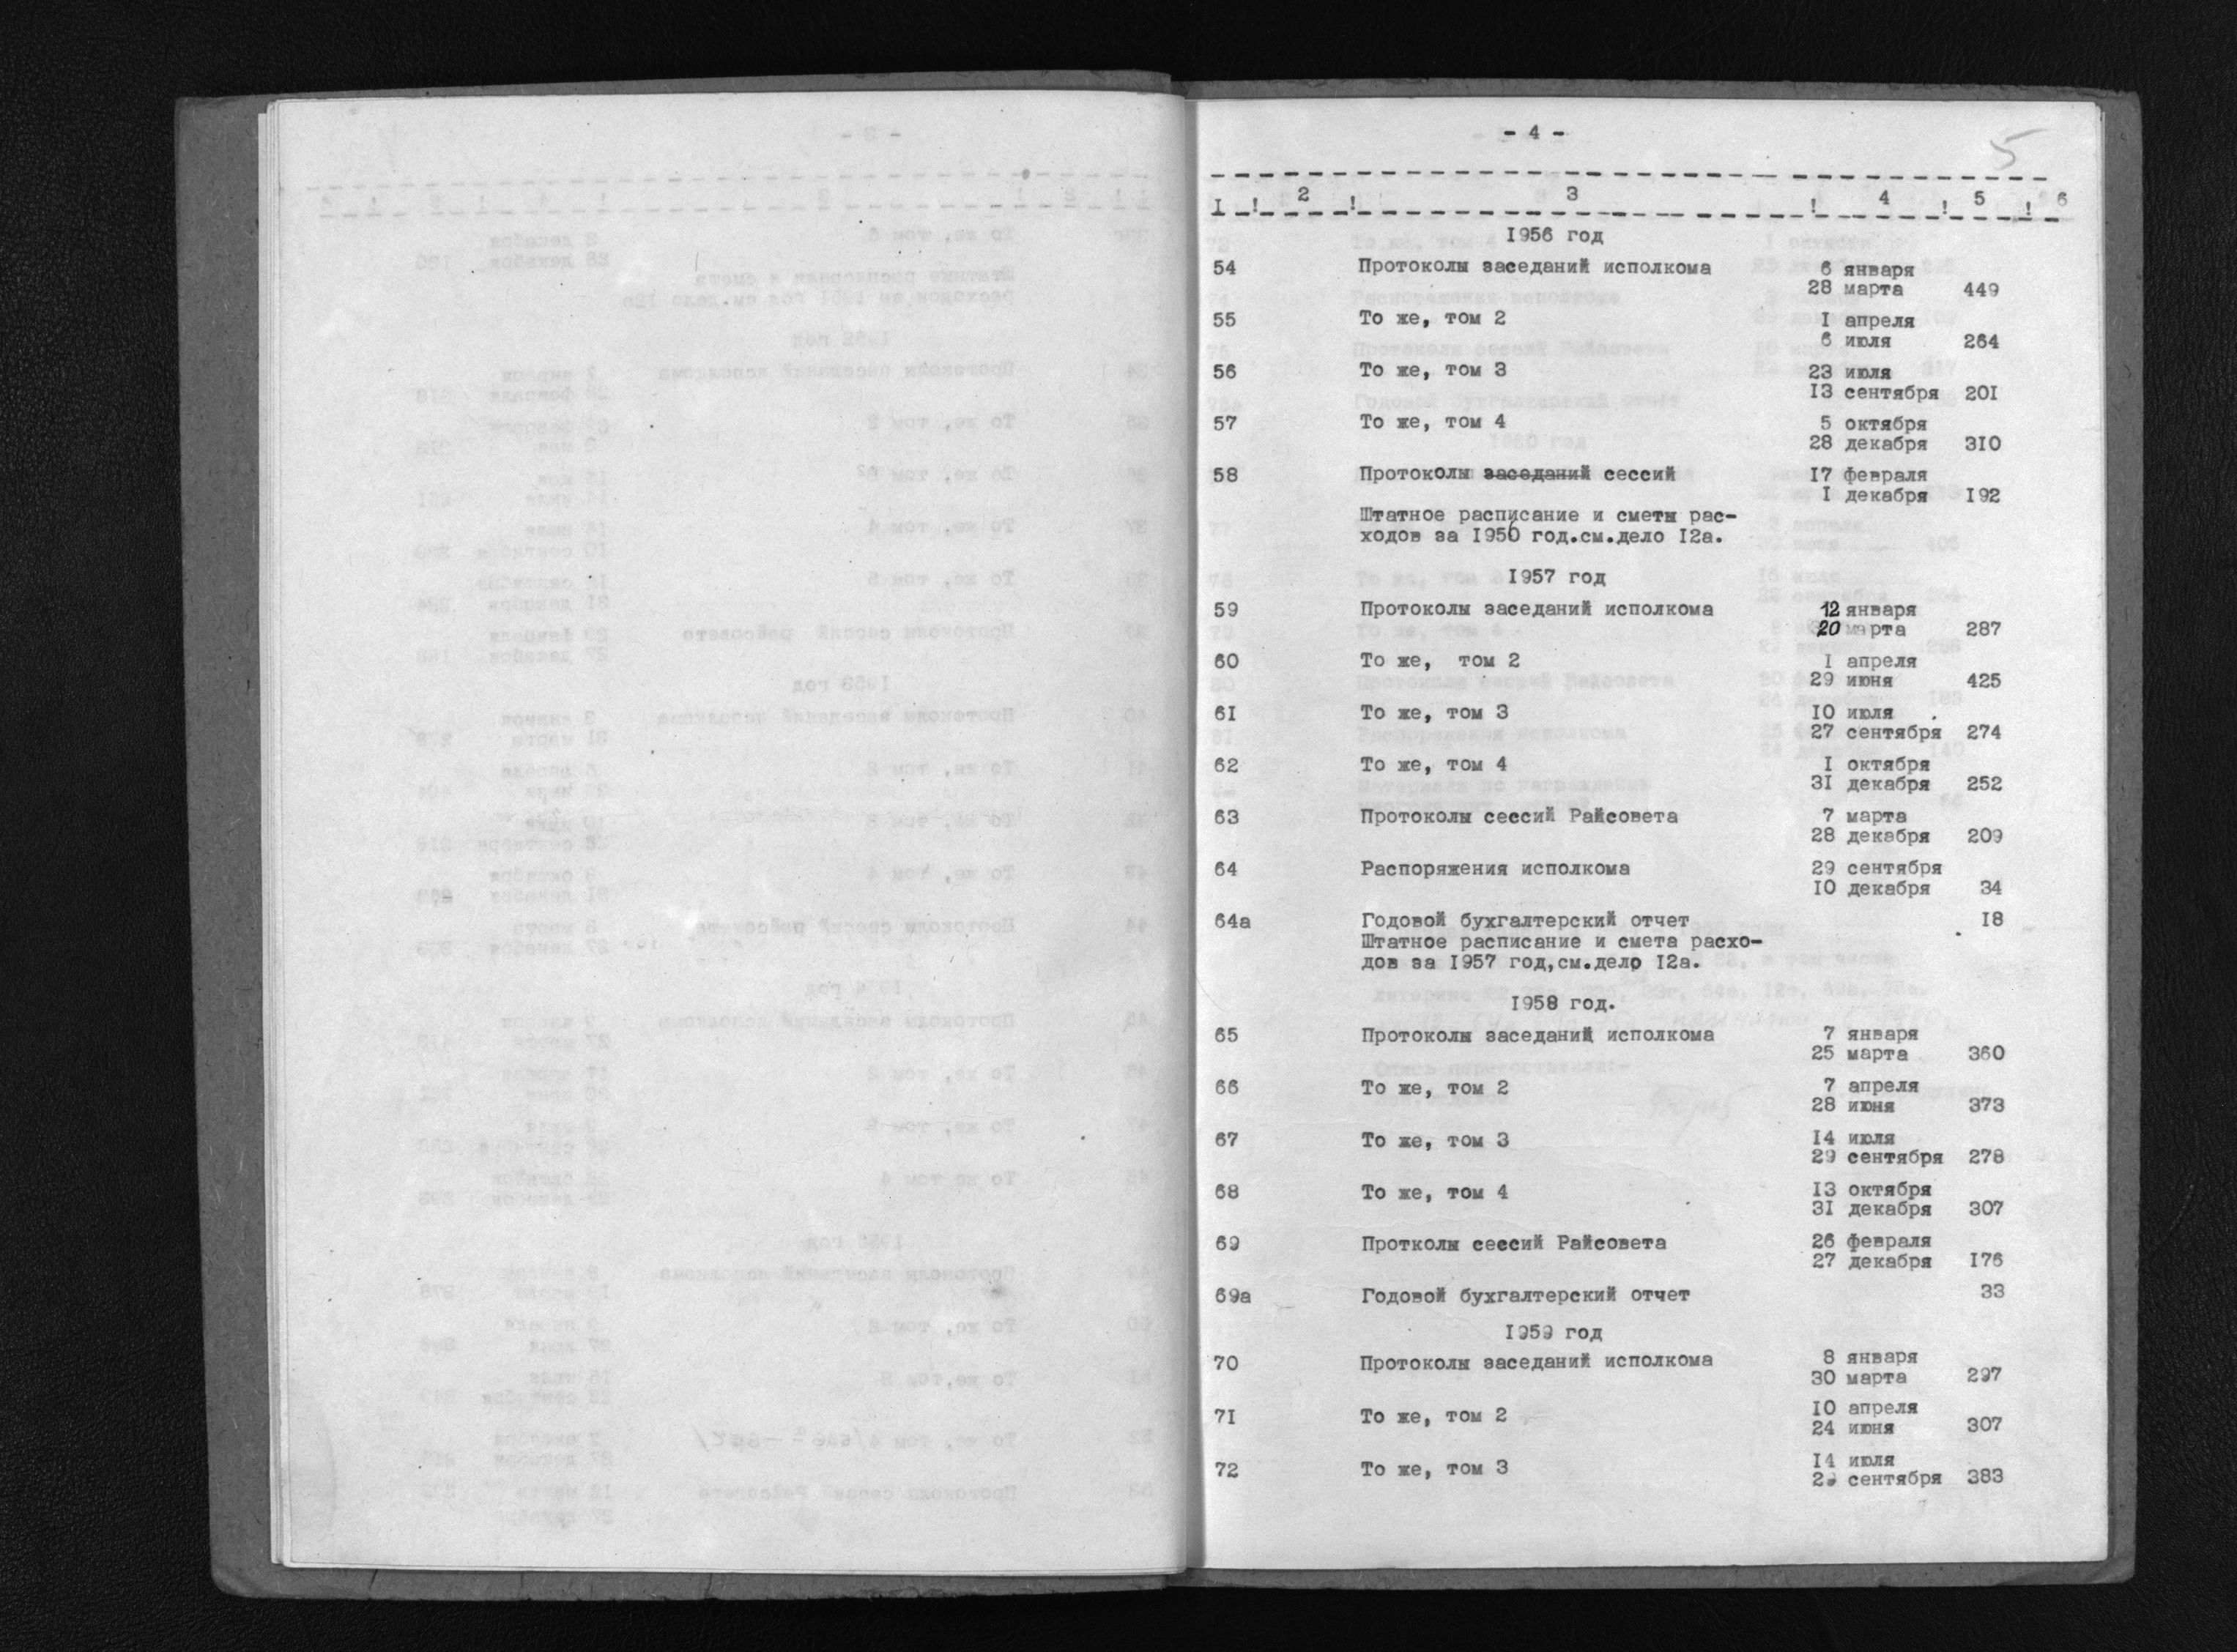 - 4 -
5
I ! 2 ! 3 ! 4 ! 5 ! 6
1956 год
54 Протоколы заседаний исполкома 6 января
28 марта 449
55 То же, том 2 I апреля
6 июля 264
56 То же, том 3 23 июля
I3 сентября 20I
57 То же, том 4 5 октября
28 декабря 3I0
58 Протоколы заседаний сессий I7 февраля
I декабря I92
Штатное расписание и сметы рас-
ходов за I956 год.см.дело I2а.
I957 год
59 Протоколы заседаний исполкома 12 января
20 марта 287
60 То же, том 2 I апреля
29 июня 425
6I То же, том 3 I0 июля
27 сентября 274
62 То же, том 4 I октября
3I декабря 252
63 Протоколы сессий Райсовета 7 марта
28 декабря 209
64 Распоряжения исполкома 29 сентября
I0 декабря 34
64а Годовой бухгалтерский отчет I8
Штатное расписание и смета расхо-
дов за I957 год,см.дело I2а.
I958 год.
65 Протоколы заседаний исполкома 7 января
25 марта 360
66 То же, том 2 7 апреля
28 июня 373
67 То же, том 3 I4 июля
29 сентября 278
68 То же, том 4 I3 октября
3I декабря 307
69 Протколы сессий Райсовета 26 февраля
27 декабря I76
69а Годовой бухгалтерский отчет 33
I959 год
70 Протоколы заседаний исполкома 8 января
30 марта 297
7I То же, том 2 I0 апреля
24 июня 307
72 То же, том 3 I4 июля
29 сентября 383